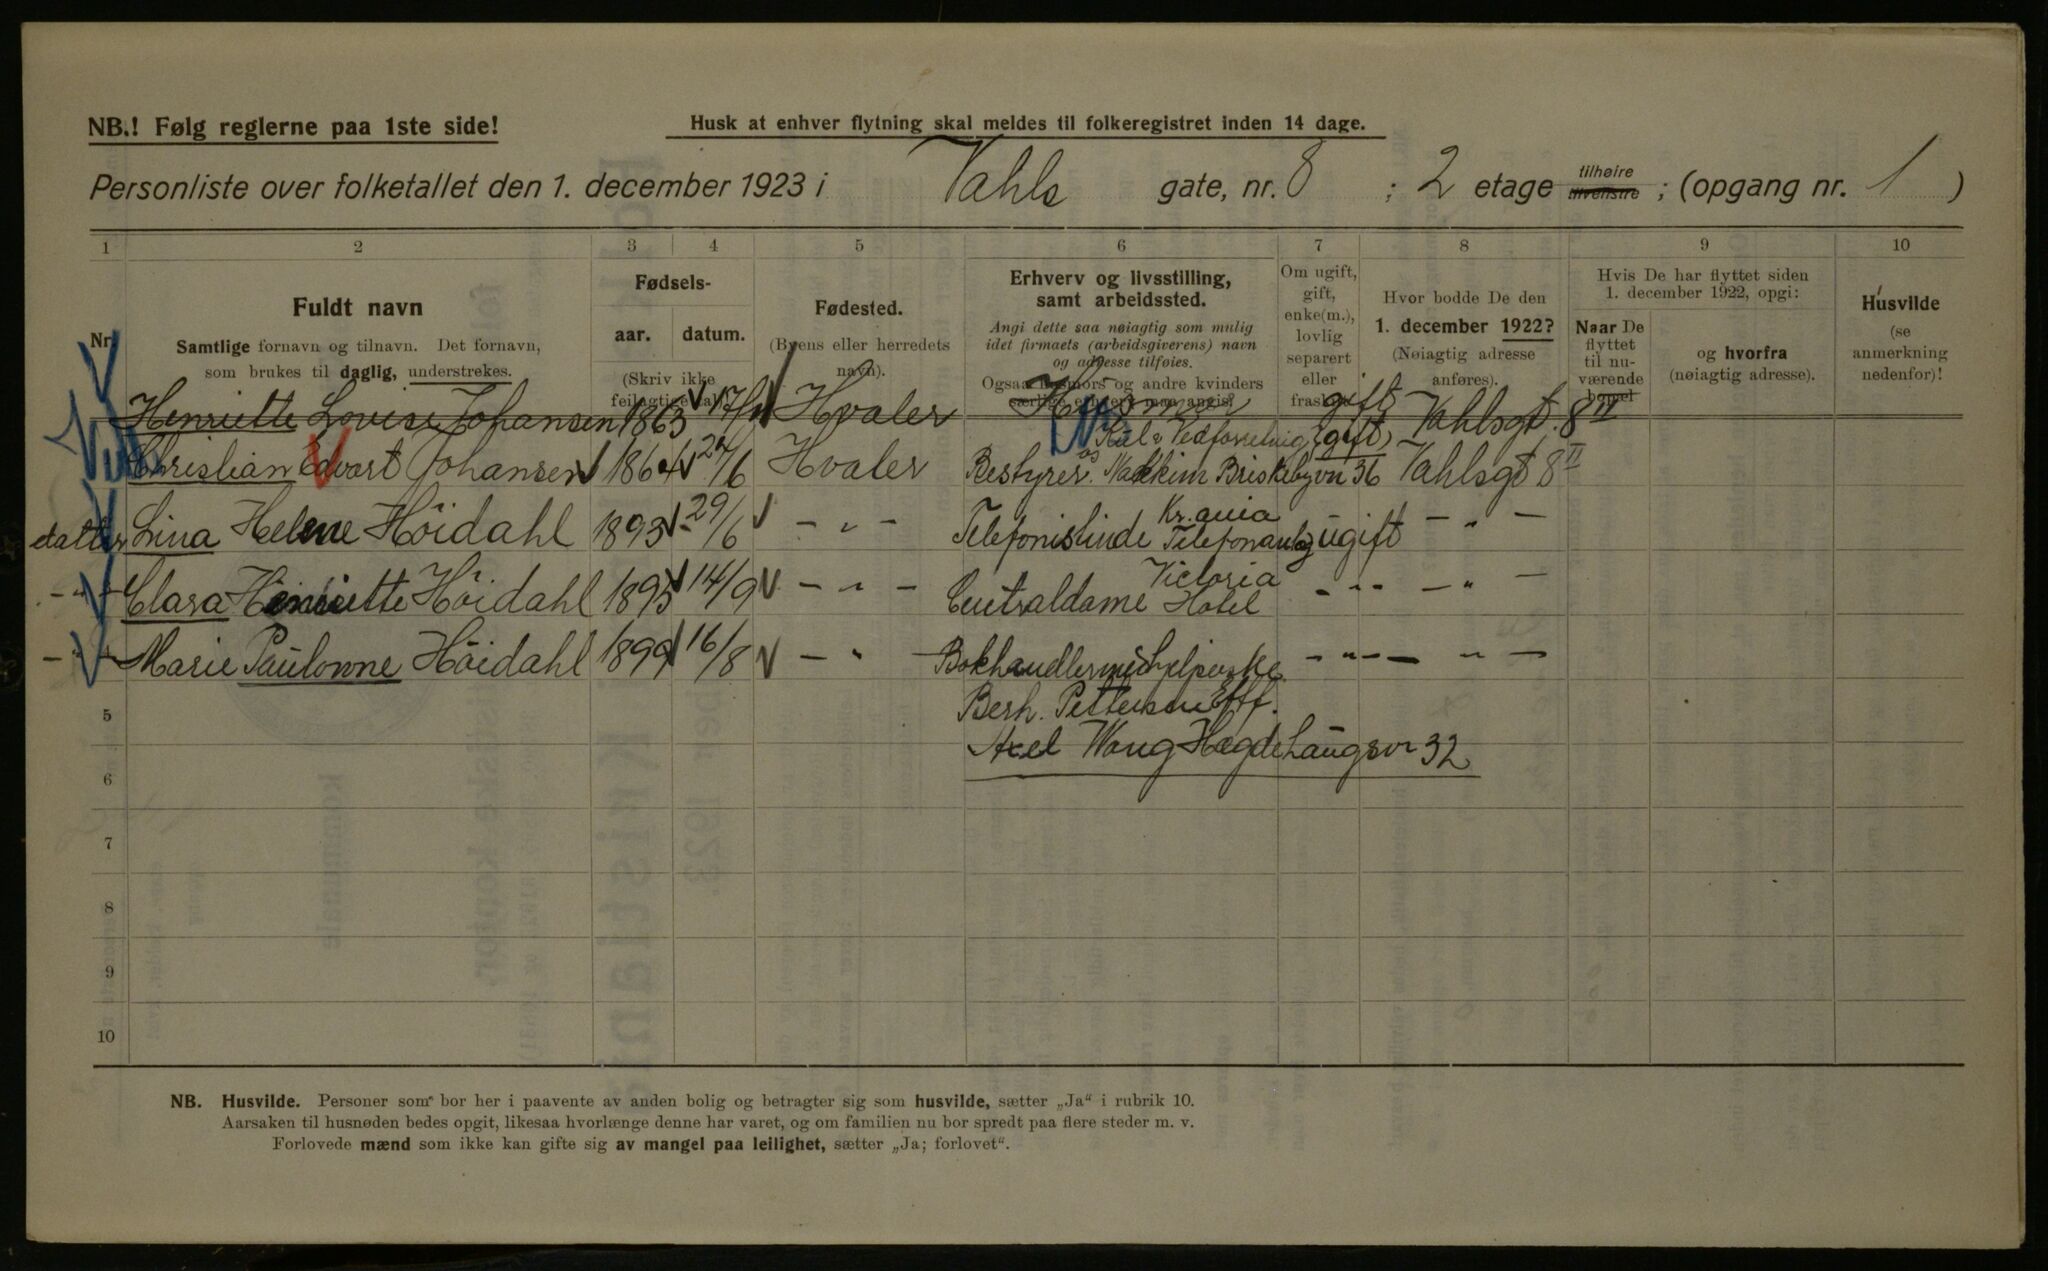 NB.! Følg reglerne paa 1ste side!
Husk at enhver flytning skal meldes til folkeregistret inden 14 dage.
Personliste over folketallet den 1. december 1923 i Vahls gate, nr. 8 ; 2 etage tilhøire tilvenstre ; (opgang nr. 1 )
1 2 3 4 5 6 7 8 9 10
Nr. Fuldt navn
Samtlige fornavn og tilnavn. Det fornavn,
som brukes til daglig, understrekes.
Fødsels-
aar. datum.
(Skriv ikke
Fødested.
(Byens eller herredets
navn).
Erhverv og livsstilling,
samt arbeidssted.
Angi dette saa nøiagtig som mulig
idet firmaets (arbeidsgiverens) navn
og adresse tilføies.
Ogsaa husmors og andre kvinders
særlige erhverv maa angis.
Om ugift,
gift,
enke(m.),
lovlig
separert
eller
fraskilt
Hvor bodde De den
1. december 1922?
(Nøiagtig adresse
anføres).
Hvis De har flyttet siden
1. december 1922, opgi:
Naar De
flyttet
til nu-
værende
bopæl
og hvorfra
(nøiagtig adresse).
Husvilde
(se
anmerkning
nedenfor)!
Henriette Lovise Johansen 1863 17/11 Hvaler Husmor gift Vahlsgt. 8 II
Kul & Vedforretning
Christian Edvart Johansen 1864 24/6 Hvaler Bestyrer Briskebyvn 36 gift Vahlsgt 8 II
Kr.ania
datter Lina Helene Höidahl 1893 29/6 - " - Telefonistinde Telefonanlæg ugift - " -
Victoria
- " - Clara Henriette Höidahl 1895 14/9 - " - Centraldame Hotel - " - - " -
- " - Marie Paulonne Höidahl 1899 16/8 - " - Bokhandlermedhjelperske - " - - " -
5 Berh. Pettersen Eftf.
Axel Wang Hægdehaugsvn 32
6
7
8
9
10
NB. Husvilde. Personer som bor her i paavente av anden bolig og betragter sig som husvilde, sætter „Ja“ i rubrik 10.
Aarsaken til husnøden bedes opgit, likesaa hvorlænge denne har varet, og om familien nu bor spredt paa flere steder m. v.
Forlovede mænd som ikke kan gifte sig av mangel paa leilighet, sætter „Ja; forlovet“.